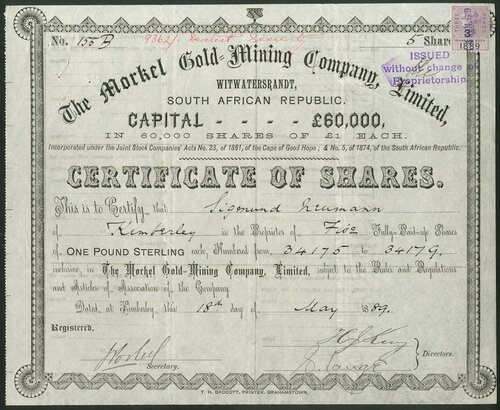 No. 155 B
5 Shares
1889
ISSUED
without change of
Proprietorship.
The Morkel Gold-Mining Company, Limited,
WITWATERSRANDT,
SOUTH AFRICAN REPUBLIC.
CAPITAL - - - - £60,000,
IN 60,000 SHARES OF £1 EACH.
Incorporated under the Joint Stock Companies' Acts No. 23, of 1861, of the Cape of Good Hope; & No. 5, of 1874, of the South African Republic.
CERTIFICATE OF SHARES.
This is to Certify, that Sigmund Neumann
of Kimberley is the Proprietor of Five Fully-Paid-up Shares
of ONE POUND STERLING each, Numbered from 34175 to 34179.
inclusive, in The Morkel Gold-Mining Company, Limited, subject to the Rules and Regulations
and Articles of Association of the Company.
Dated, at Kimberley this 18th day of May 1889.
Registered,
Secretary.
Directors.
T. H. GROCOTT, PRINTER, GRAHAMSTOWN.